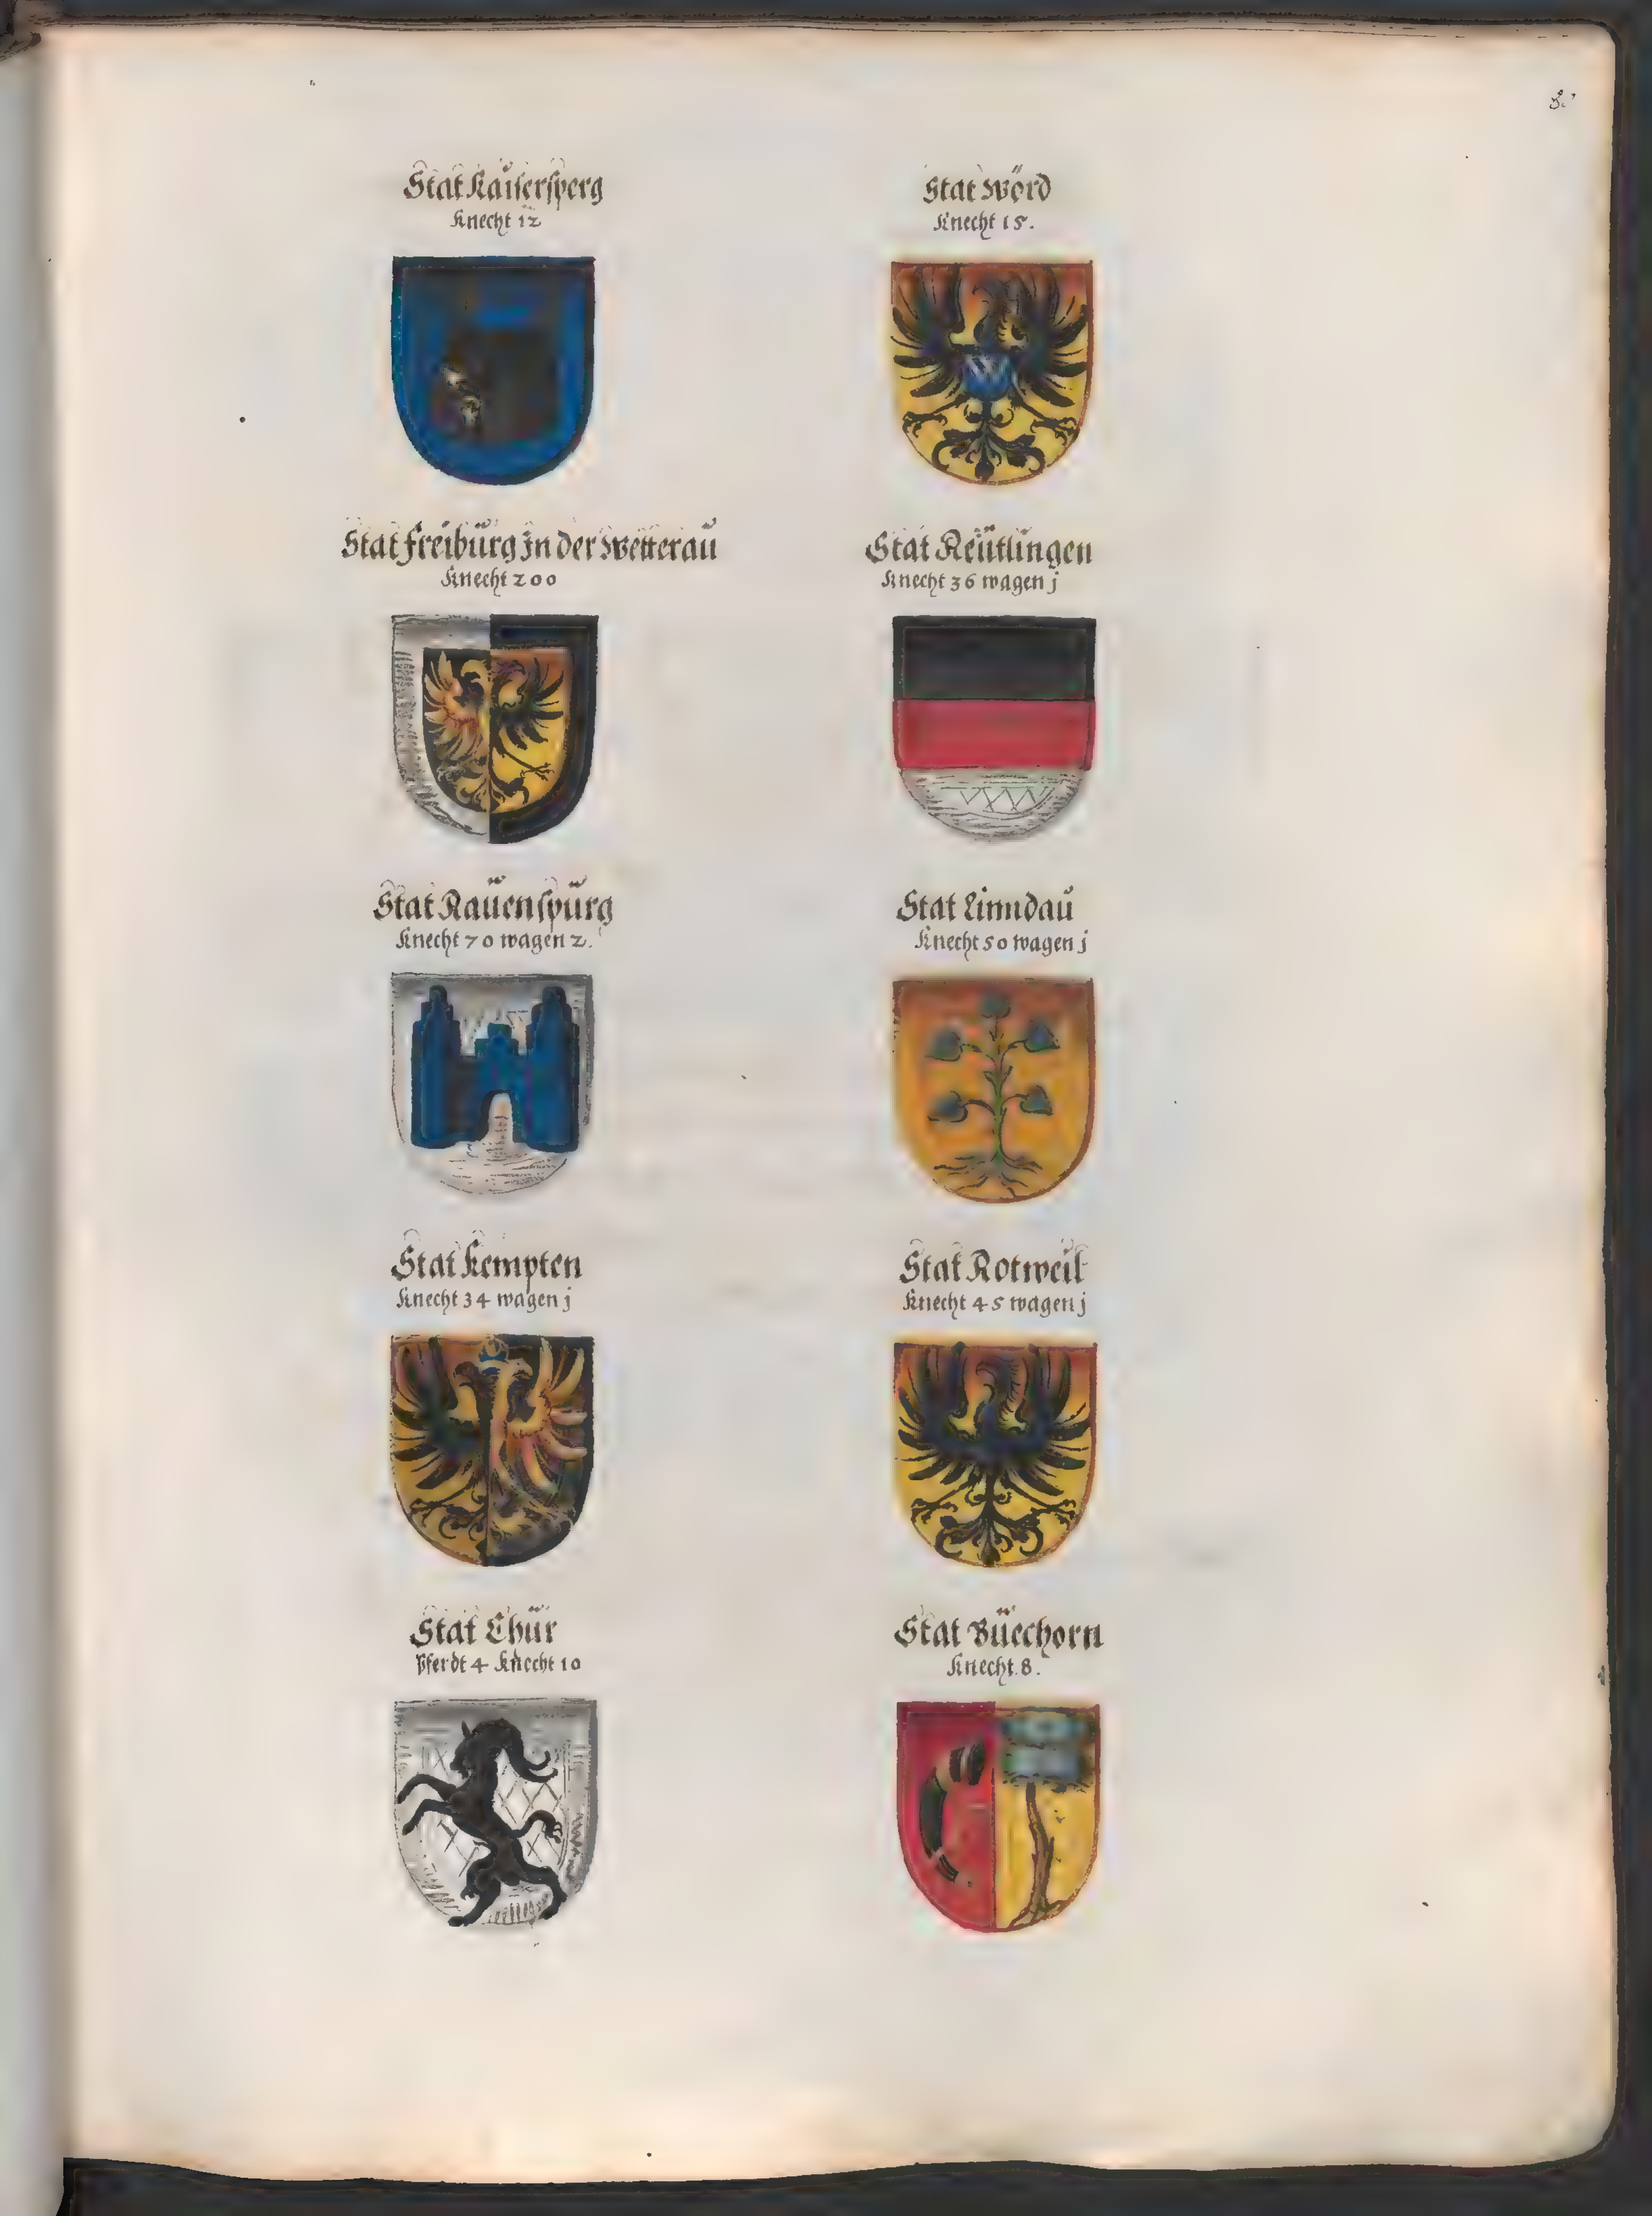 8.
Stat Kaisersperg
Knecht 12
Stat Wörd
Knecht 15.
Stat Freiburg In der Wetterau
Knecht 200
Stat Reütlingen
Knecht 36 wagen j
Stat Rauenspurg
Knecht 70 wagen 2.
Stat Linndau
Knecht 50 wagen j
Stat Kempten
Knecht 34 wagen j
Stat Rotweil
Knecht 45 wagen j
Stat Chur
Pferdt 4 Knecht 10
Stat Büechorn
Knecht 8.